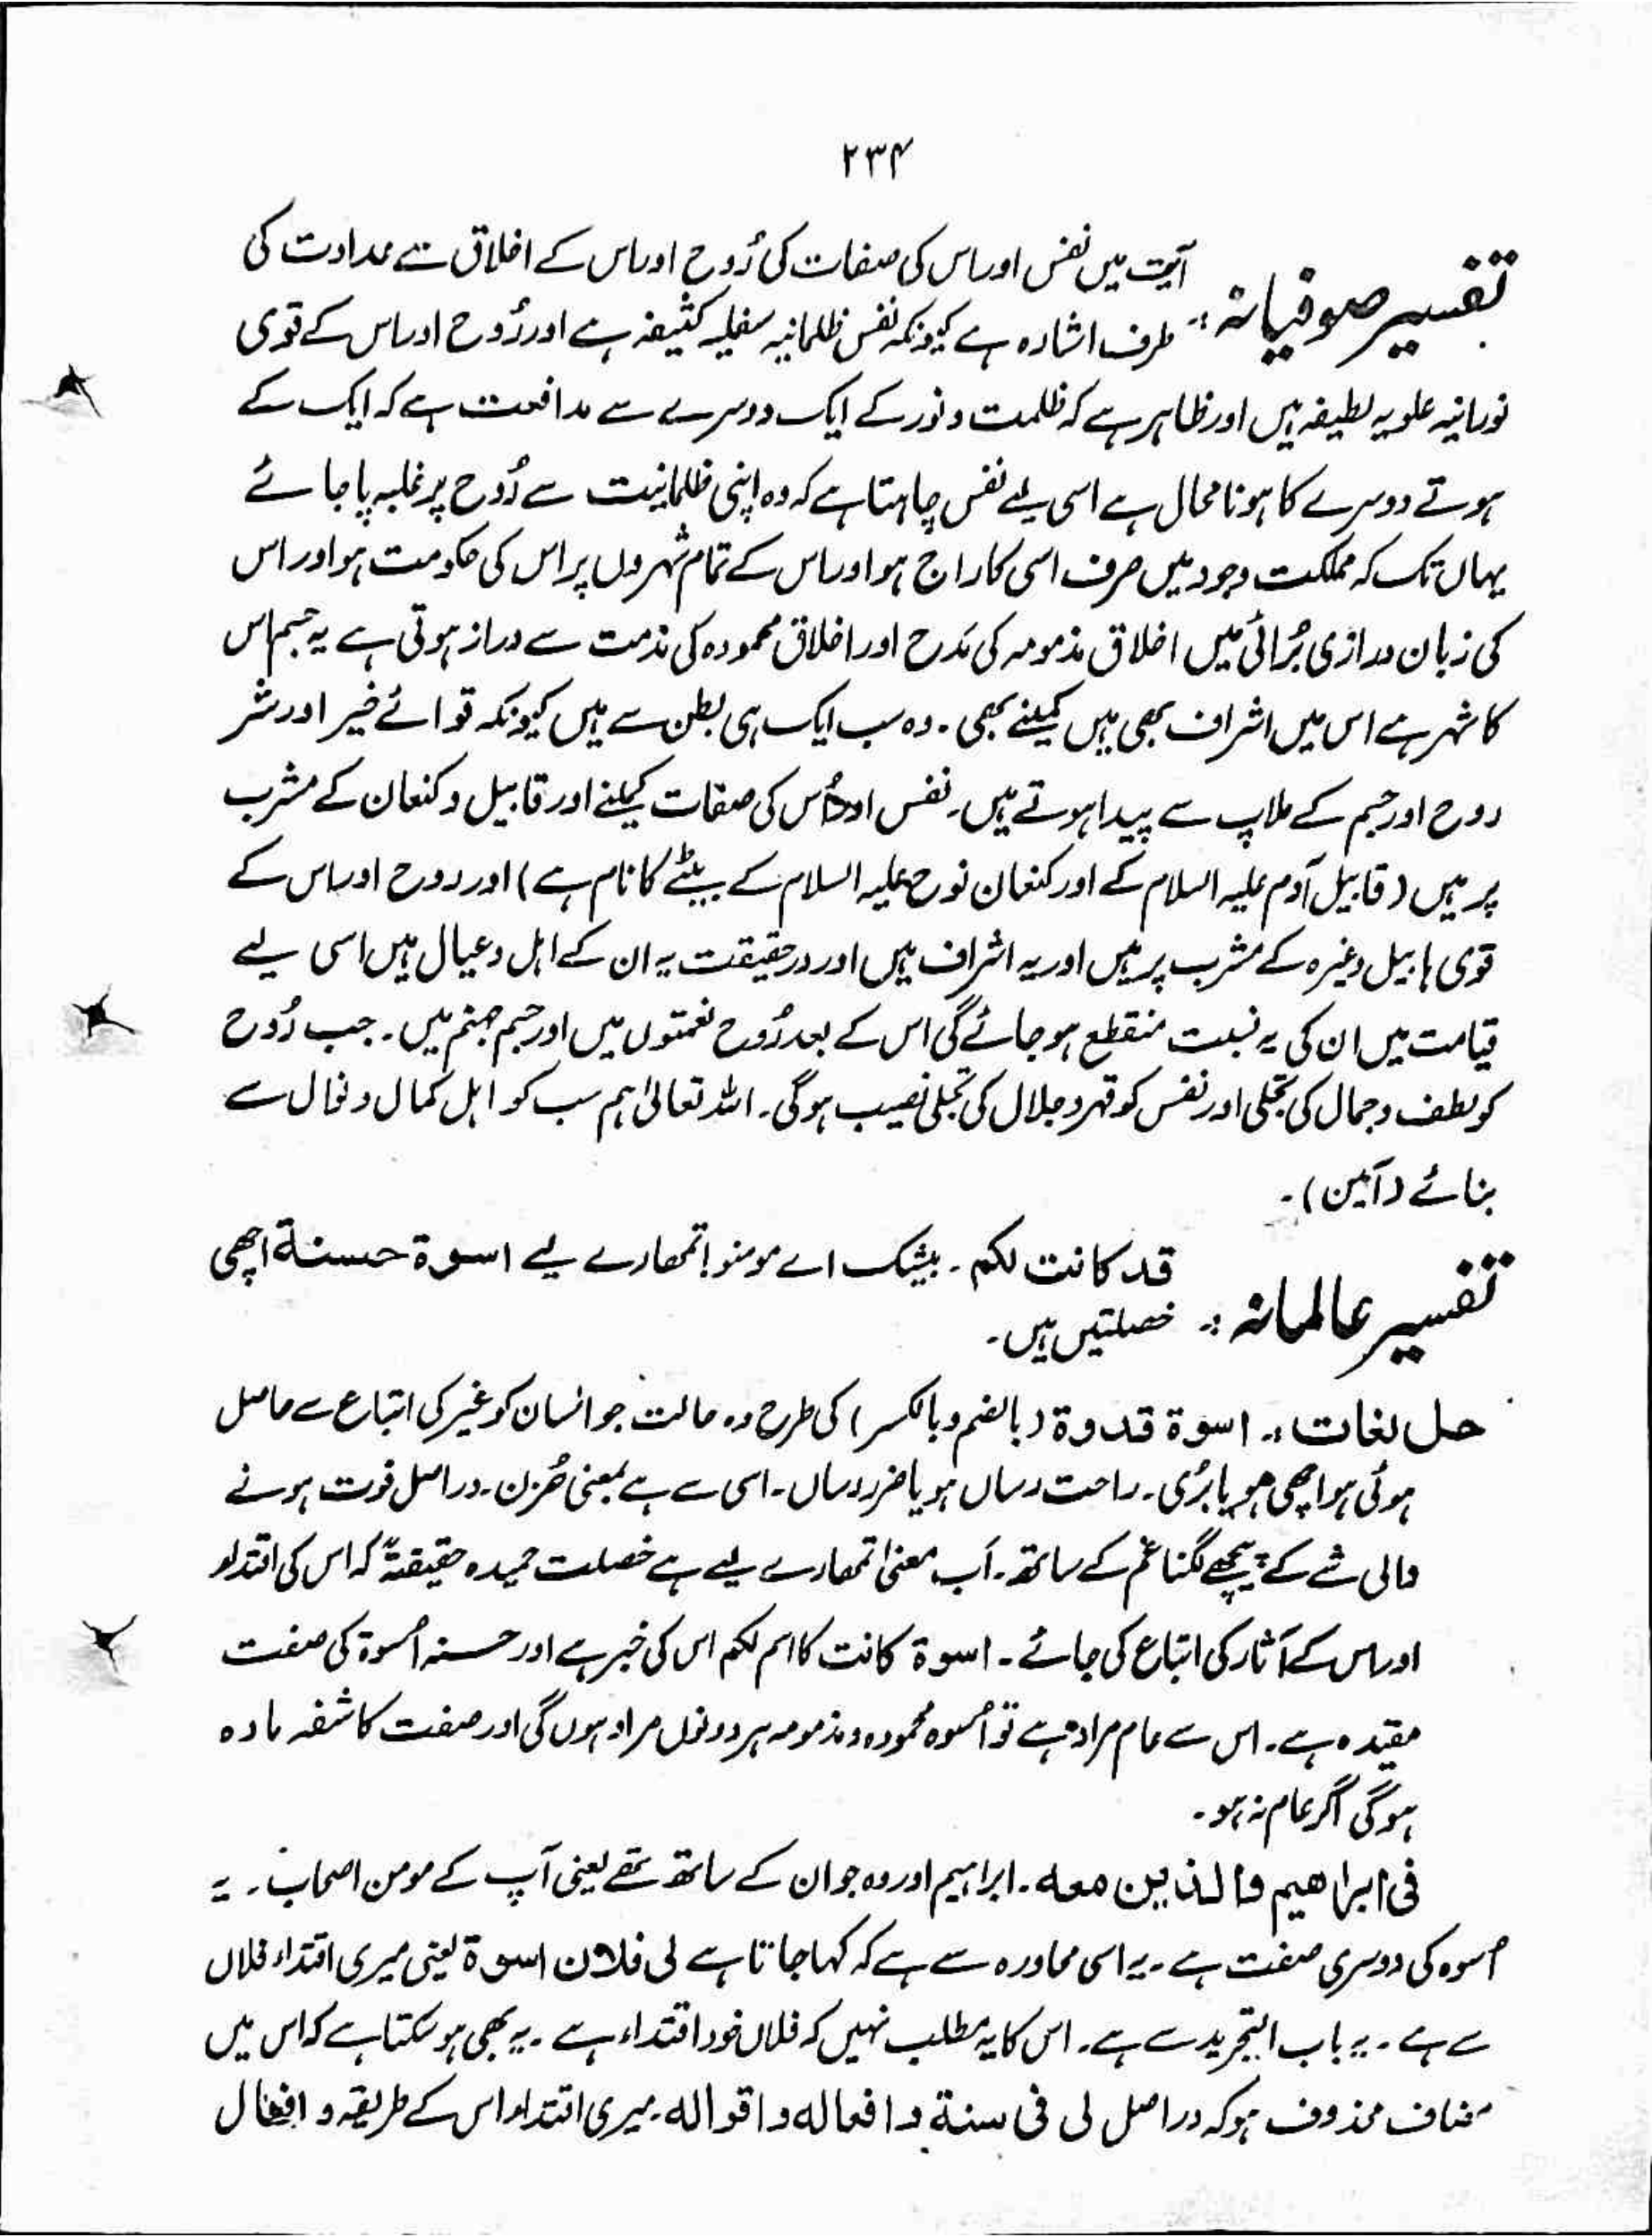 ۲۳۴
تفسیر صوفیانہ :- آیت میں نفس اور اس کی صفات کی رُوح اور اس کے اخلاق سے عداوت کی
طرف اشارہ ہے کیونکہ نفس ظلمانیہ سفلیہ کثیفہ ہے اور رُوح اور اس کے قوی
نورانیہ علویہ لطیفہ ہیں اور ظاہر ہے کہ ظلمت و نور کے ایک دوسرے سے مدافعت ہے کہ ایک کے
ہوتے دوسرے کا ہونا محال ہے اسی لیے نفس چاہتا ہے کہ وہ اپنی ظلمانیت سے رُوح پر غلبہ پا جائے
یہاں تک کہ مملکت وجود میں صرف اسی کا راج ہو اور اس کے تمام شہروں پر اس کی حکومت ہو اور اس
کی زبان درازی بُرائی میں اخلاق مذمومہ کی مَدح اور اخلاق محمودہ کی مذمت سے دراز ہوتی ہے یہ جسم اس
کا شہر ہے اس میں اشراف بھی ہیں کمینے بھی ۔ وہ سب ایک ہی بطن سے ہیں کیونکہ قوائے خیر اور شر
روح اور جسم کے ملاپ سے پیدا ہوتے ہیں۔ نفس اور اُس کی صفات کمینے اور قابیل و کنعان کے مشرب
پر ہیں (قابیل آدم علیہ السلام کے اور کنعان نوح علیہ السلام کے بیٹے کا نام ہے) اور روح اور اس کے
قوی ہابیل وغیرہ کے مشرب پر ہیں اور یہ اشراف ہیں اور درحقیقت یہ ان کے اہل و عیال ہیں اسی لیے
قیامت میں ان کی یہ نسبت منقطع ہو جائے گی اس کے بعد رُوح نعمتوں میں اور جسم جہنم میں ۔ جب رُوح
کو لطف و جمال کی تجلی اور نفس کو قہر و جلال کی تجلی نصیب ہو گی۔ اللہ تعالیٰ ہم سب کو اہل کمال و نوال سے
بنائے (آمین) ۔
تفسیر عالمانہ :- قد کانت لکم ۔ بیشک اے مومنو! تمھارے لیے اسوۃ حسنۃ اچھی
خصلتیں ہیں ۔
حل لغات :- اسوۃ قدوۃ (بالضم و بالکسر) کی طرح وہ حالت جو انسان کو غیر کی اتباع سے حاصل
ہوئی ہو اچھی ہو یا بُری۔ راحت رساں ہو یا ضرر رساں۔ اسی سے ہے بمعنی حُزن۔ دراصل فوت ہونے
والی شے کے پیچھے لگنا غم کے ساتھ۔ اَب معنیٰ تمھارے لیے ہے خصلت حمیدہ حقیقۃً کہ اس کی اقتداء
اور اس کے آثار کی اتباع کی جائے ۔ اسوۃ کانت کا اسم لکم اس کی خبر ہے اور حسنہ اُسوۃ کی صفت
مقیدہ ہے۔ اس سے عام مراد ہے تو اُسوہ محمودہ و مذمومہ ہر دونوں مراد ہوں گی اور صفت کاشفہ مادہ
ہو گی اگر عام نہ ہو ۔
فی ابراھیم والذین معہ ۔ ابراہیم اور وہ جو ان کے ساتھ تھے یعنی آپ کے مومن اصحاب ۔ یہ
اُسوہ کی دوسری صفت ہے ۔ یہ اسی محاورہ سے ہے کہ کہا جاتا ہے لی فلان اسوۃ یعنی میری اقتداء فلاں
سے ہے ۔ یہ باب التجرید سے ہے۔ اس کا یہ مطلب نہیں کہ فلاں خود اقتداء ہے ۔ یہ بھی ہو سکتا ہے کہ اس میں
مضاف محذوف ہو کہ دراصل لی فی سنۃ و افعالہ و اقوالہ۔ میری اقتداء اس کے طریقہ و افعال